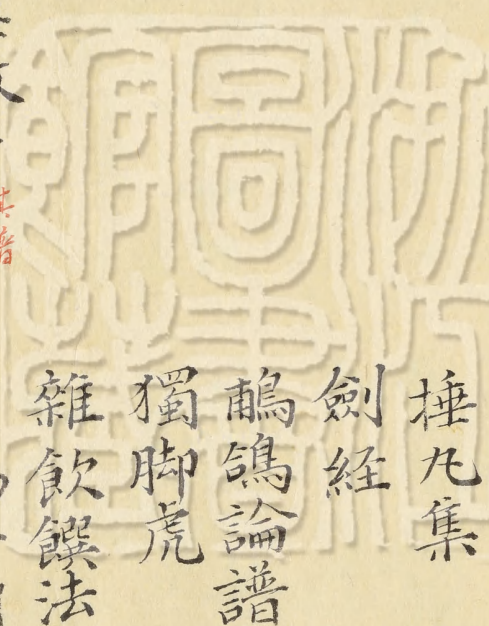 捶丸集
劍経
鵏鴿論譜
獨脚虎
雜飲饌法